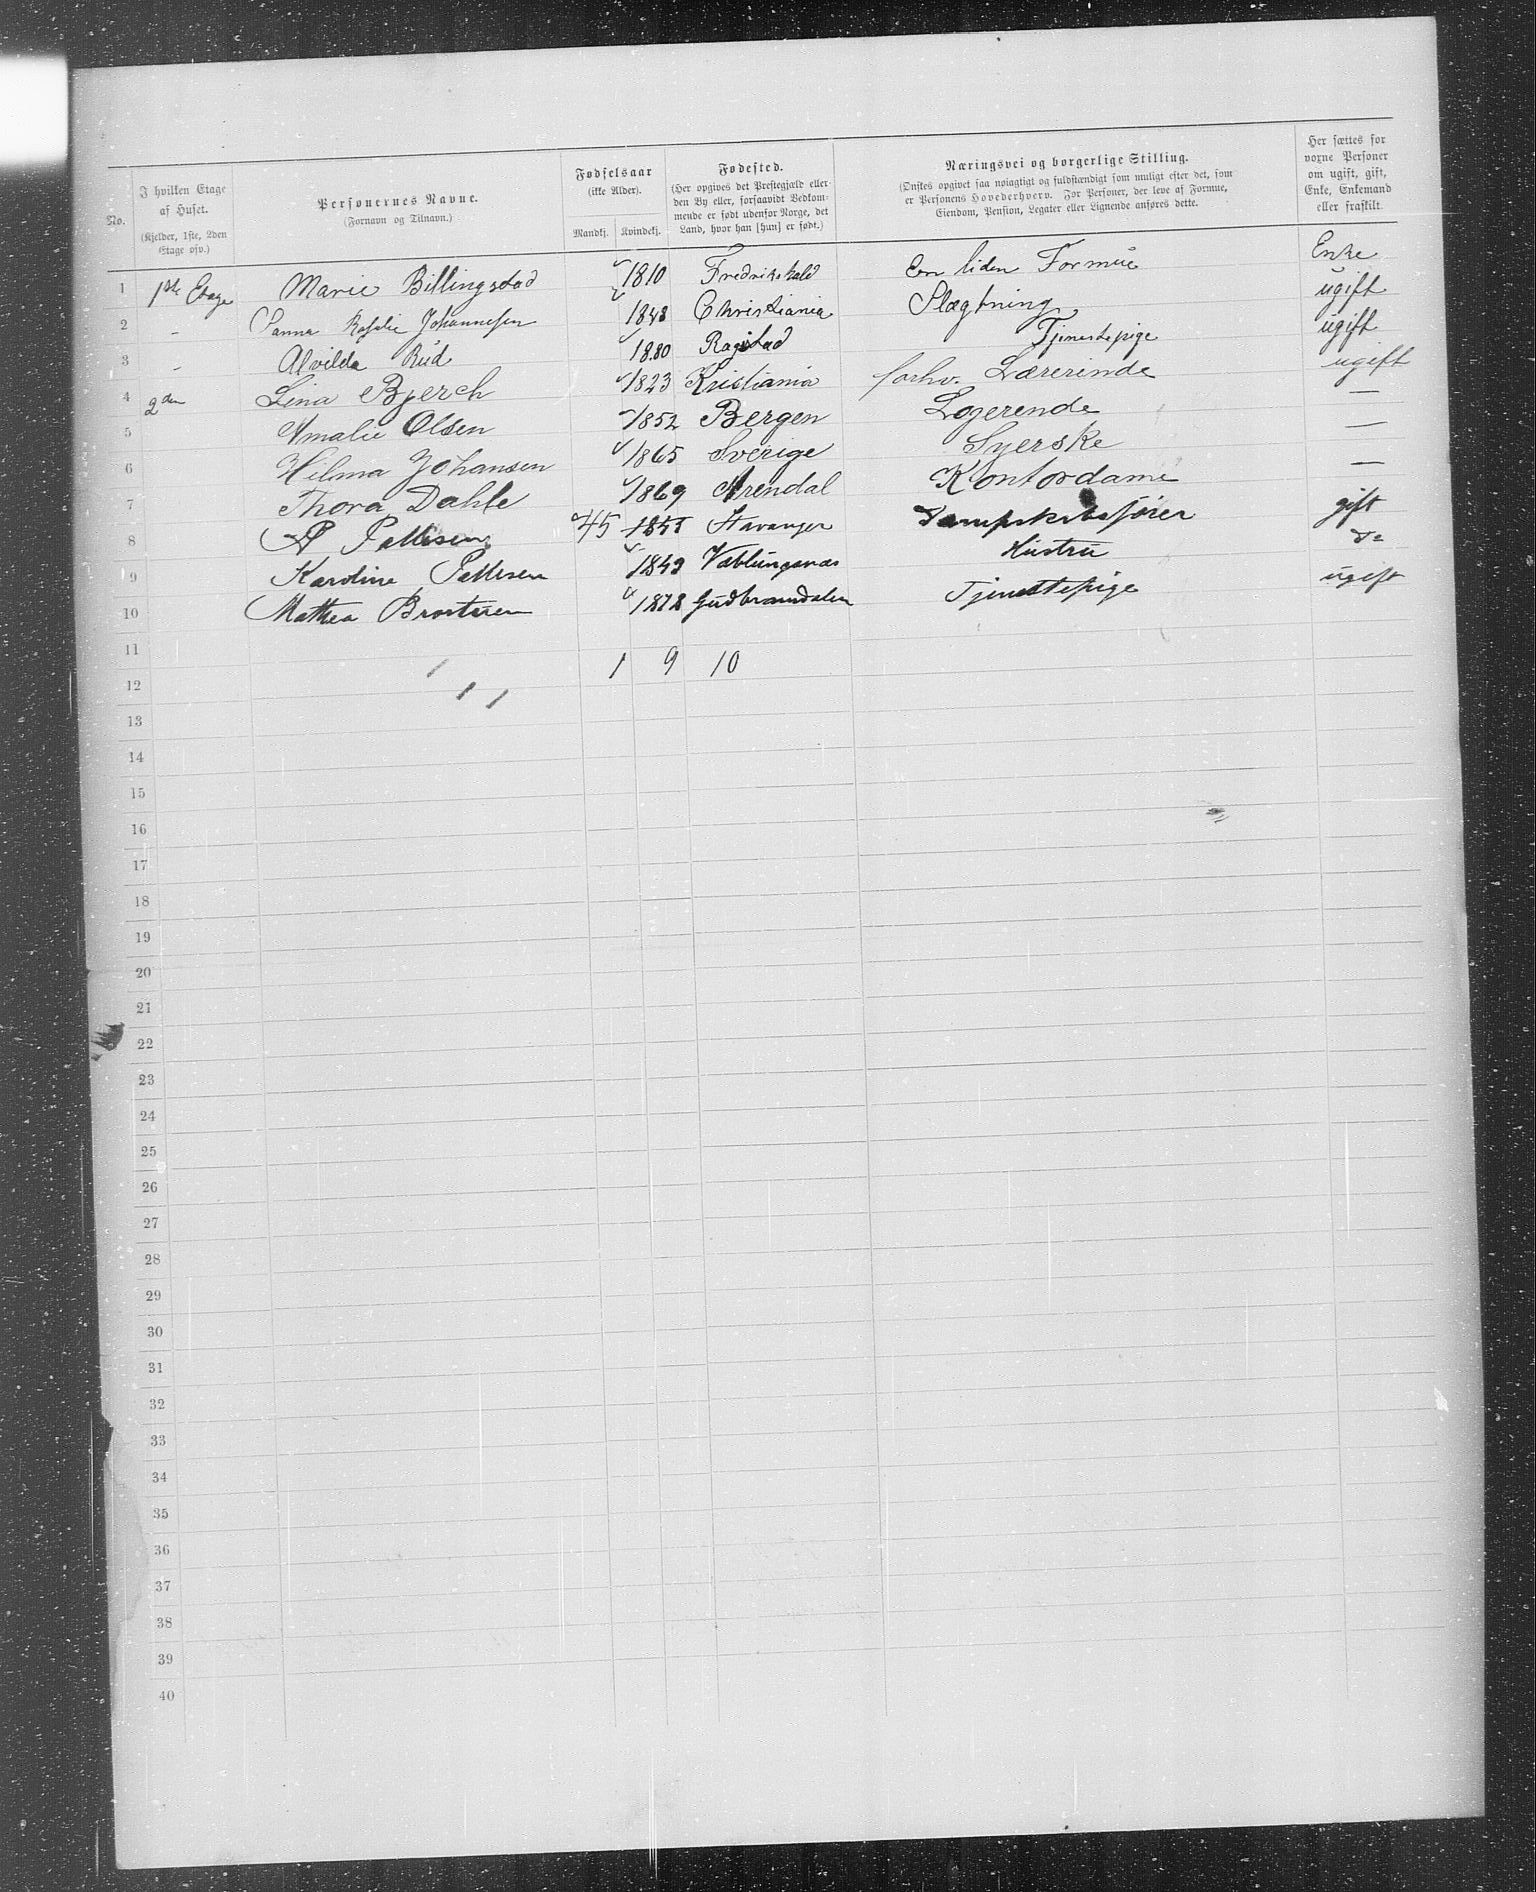 No. | I hvilken Etage af Huset. (Kjelder, 1ste, 2den Etage osv.) | Personernes Navne. (Fornavn og Tilnavn.) | Fødselsaar (ikke Alder). Mandkj. Kvindekj. | Fødested. (Her opgives det Prestegjæld eller den By eller, forsaavidt Vedkommende er født udenfor Norge, det Land, hvor han [hun] er født.) | Næringsvei og borgerlige Stilling. (Ønskes opgivet saa nøiagtigt og fuldstændigt som muligt efter det, som er Personens Hovederhverv. For Personer, der leve af Formue, Eiendom, Pension, Legater eller Lignende anføres dette. | Her sættes for voxne Personer om ugift, gift, Enke, Enkemand eller fraskilt.
1 1ste Etage Marie Billingstad 1810 Fredrikshald En liden Formue Enke
2 - Rosalie Johannesen 1848 Christiania Slægtning ugift
3 - Alvilda Rud 1880 Tjenestepige ugift
4 2den Lina Bjerch 1823 Kristiania forhv. Lærerinde ugift
5 Amalie Olsen 1852 Bergen Logerende —
6 Hilma Johansen 1865 Sverige Syerske —
7 Thora Dahle 1869 Arendal Kontordame —
8 45 Stavanger Dampskibsfører gift
9 Karoline 1849 Væblungsnæs Hustru do
10 Mathea 1878 Gudbrandsdalen Tjenestepige ugift
11
1 9 10
12
13
14
15
16
17
18
19
20
21
22
23
24
25
26
27
28
29
30
31
32
33
34
35
36
37
38
39
40